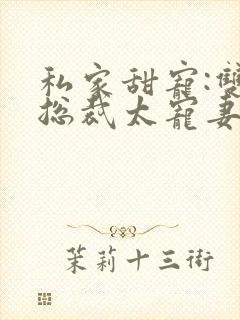 私家甜寵:雙
总裁太寵妻
茉莉十三街